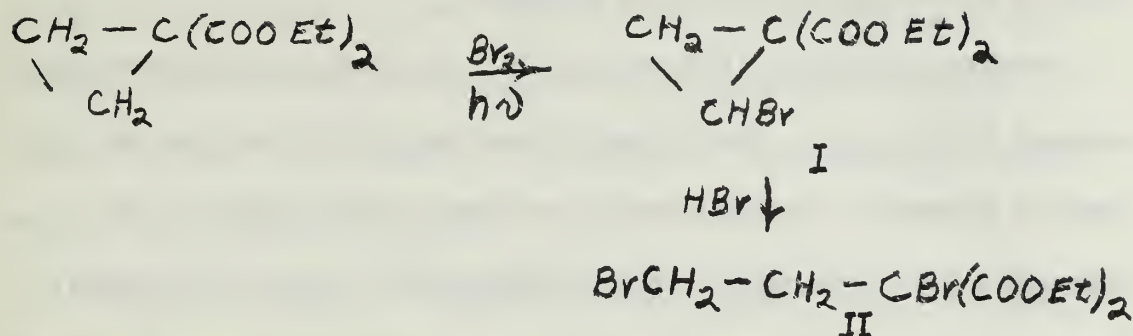 CH₂ — C(COO Et)₂ Br₂ CH₂ — C(COO Et)₂
CH₂ hν CHBr
I
HBr ↓
BrCH₂ — CH₂ — CBr(COOEt)₂
II